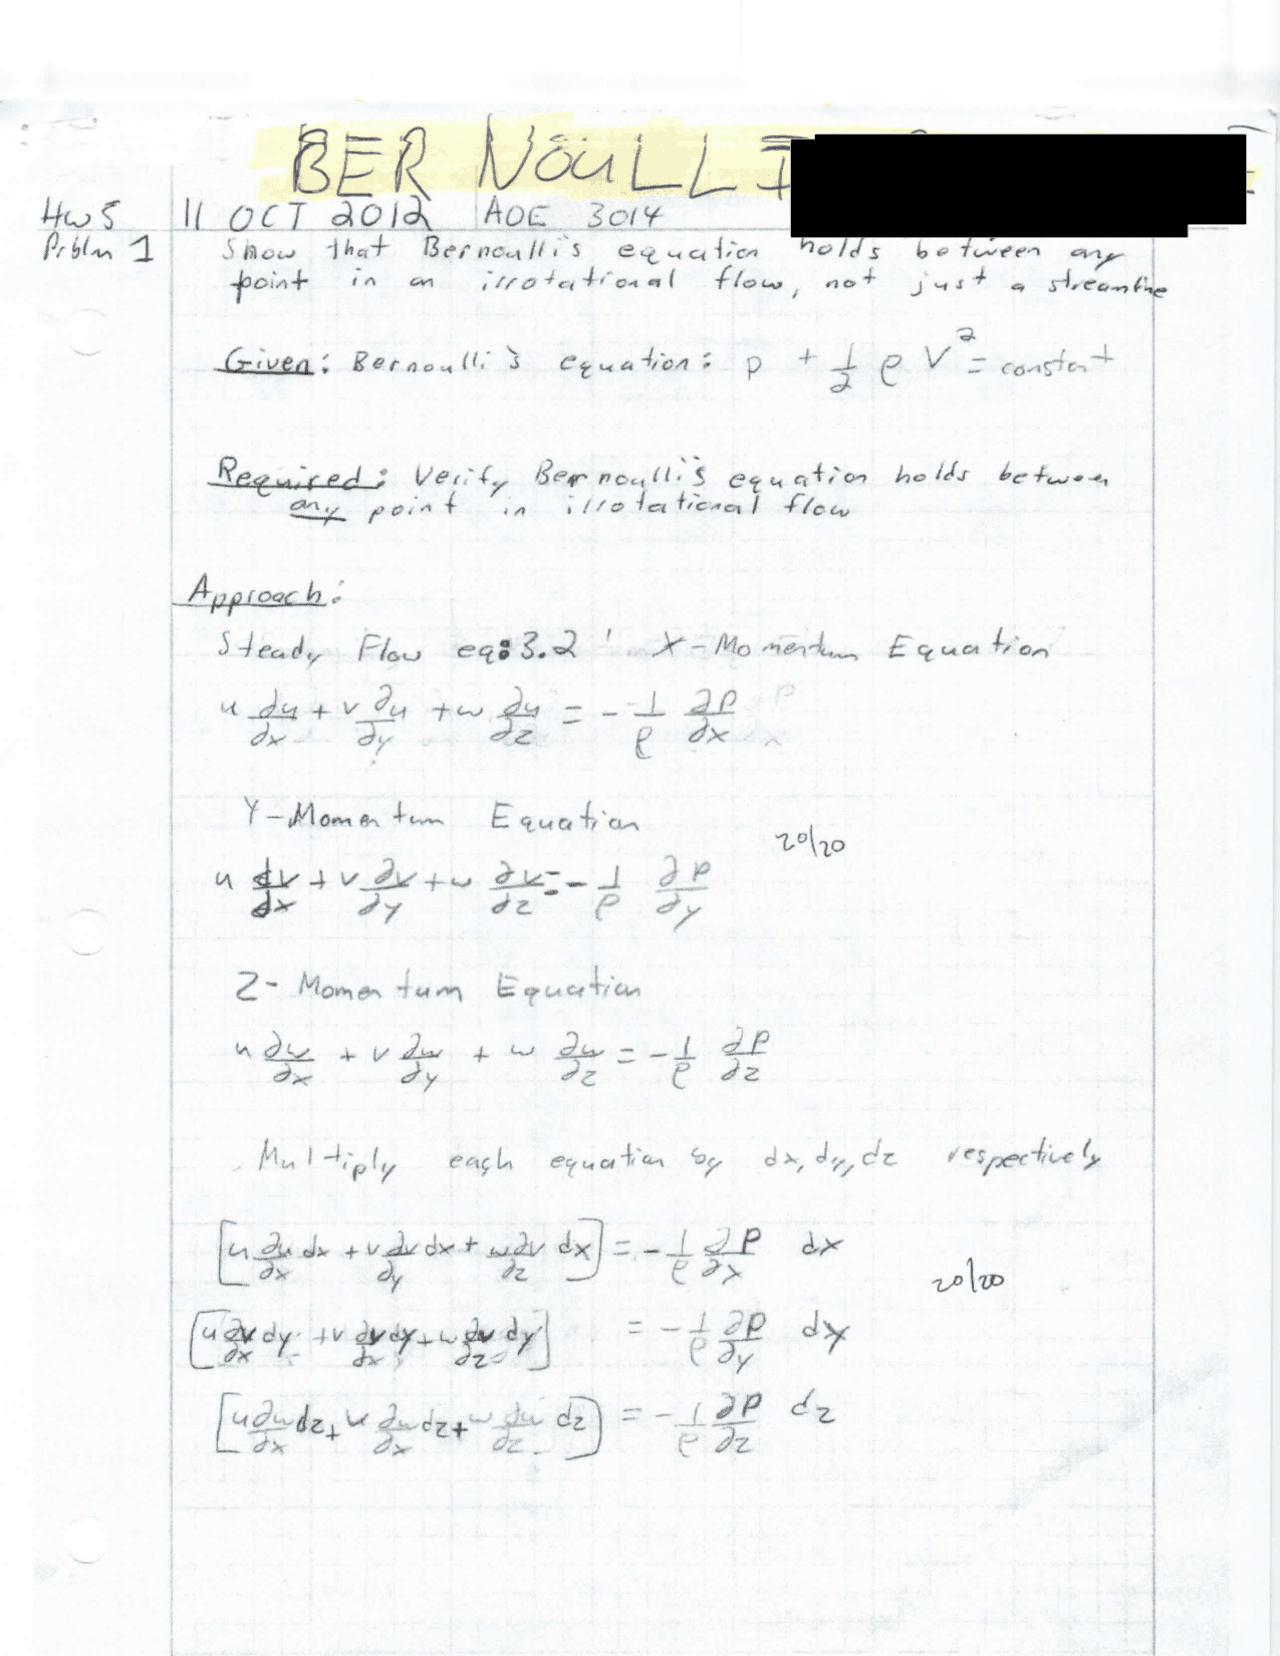 BERNOULLI
HW5 11 OCT 2012 AOE 3014
Prblm 1 Show that Bernoulli's equation holds between any
point in an irrotational flow, not just a streamline
Given: Bernoulli's equation: p + 1/2 ρ V² = constant
Required: Verify Bernoulli's equation holds between
any point in irrotational flow
Approach:
Steady Flow eq: 3.2 X-Momentum Equation
u ∂u/∂x + v ∂u/∂y + w ∂u/∂z = - 1/ρ ∂P/∂x
Y-Momentum Equation
20/20
u ∂v/∂x + v ∂v/∂y + w ∂v/∂z = - 1/ρ ∂P/∂y
Z-Momentum Equation
u ∂w/∂x + v ∂w/∂y + w ∂w/∂z = - 1/ρ ∂P/∂z
Multiply each equation by dx, dy, dz respectively
[u ∂u/∂x dx + v ∂v/∂y dx + w ∂v/∂z dx] = - 1/ρ ∂P/∂x dx
20/20
[u ∂v/∂x dy + v ∂v/∂x dy + w ∂v/∂z dy] = - 1/ρ ∂P/∂y dy
[u ∂w/∂x dz + v ∂w/∂x dz + w ∂w/∂z dz] = - 1/ρ ∂P/∂z dz